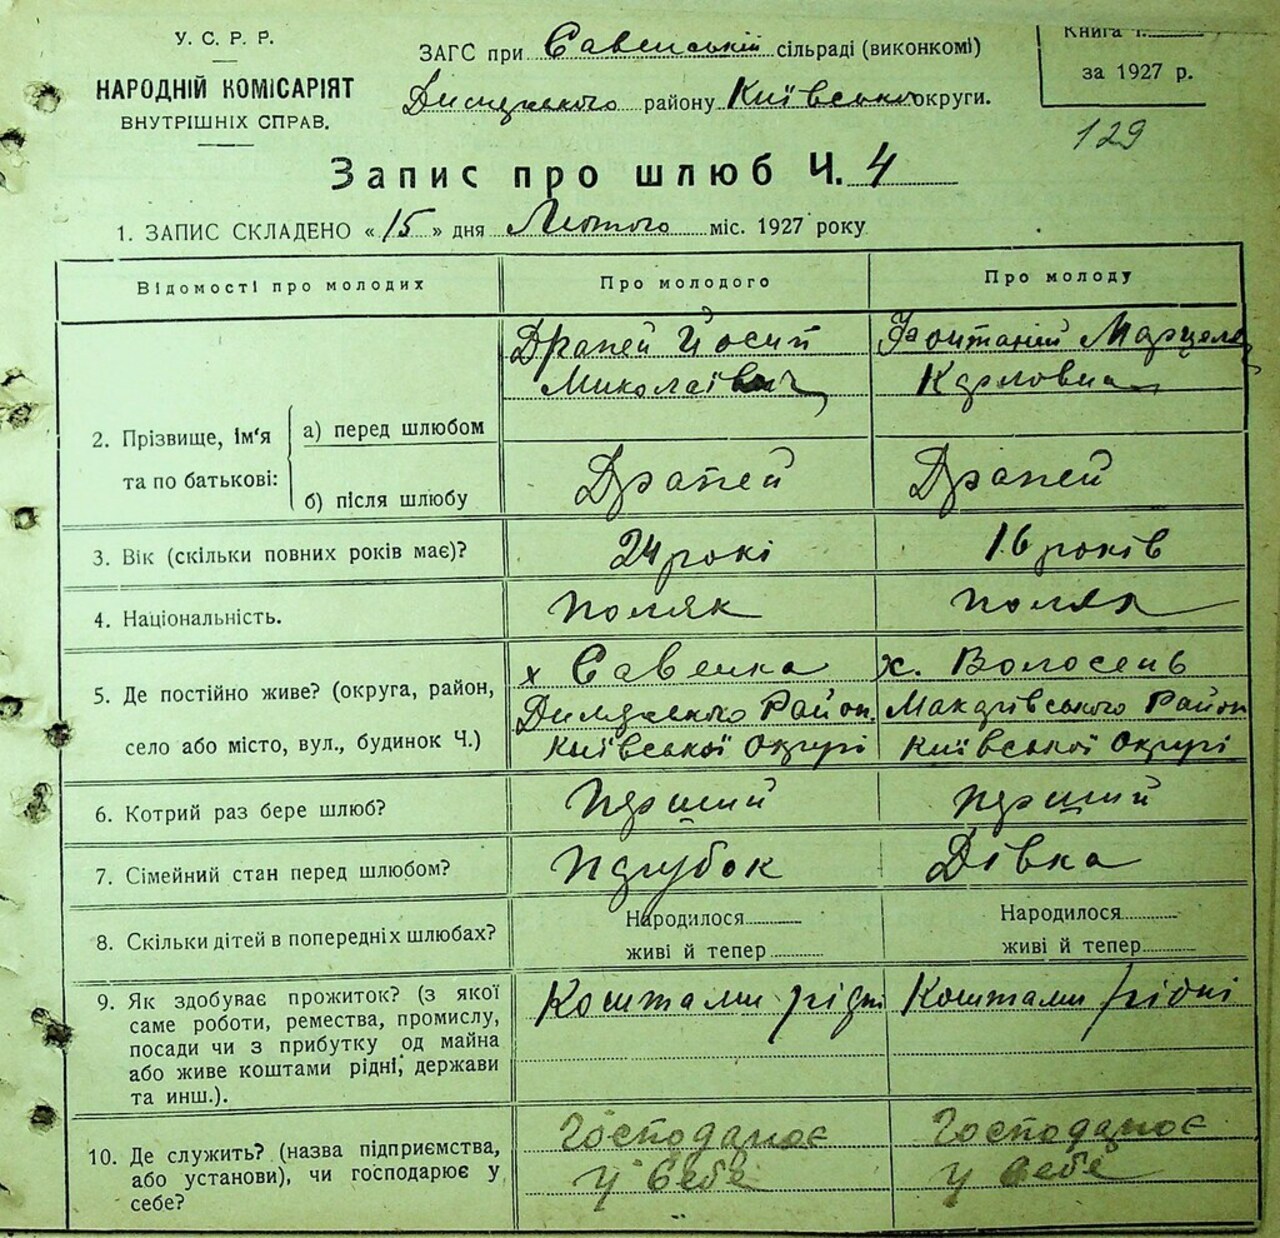 У. С. Р. Р.
НАРОДНІЙ КОМІСАРІЯТ
ВНУТРІШНІХ СПРАВ.
ЗАГС при Савенській сільраді (виконкомі)
району Київської округи.
Книга
за 1927 р.
129
Запис про шлюб Ч. 4
1. ЗАПИС СКЛАДЕНО «15» дня Лютого міс. 1927 року
Відомості про молодих
Про молодого
Про молоду
2. Прізвище, ім'я та по батькові:
а) перед шлюбом
б) після шлюбу
Драпей Йосип
Миколаївич
Марцеля
Карловна
Драпей
Драпей
3. Вік (скільки повних років має)?
24 рокі
16 років
4. Національність.
поляк
поляк
5. Де постійно живе? (округа, район,
село або місто, вул., будинок Ч.)
х Савенка
Район.
Київської Округі
х. Волосень
Макарівського Район
Київської Округі
6. Котрий раз бере шлюб?
перший
перший
7. Сімейний стан перед шлюбом?
парубок
Дівка
8. Скільки дітей в попередніх шлюбах?
Народилося
живі й тепер
Народилося
живі й тепер
9. Як здобуває прожиток? (з якої
саме роботи, ремества, промислу,
посади чи з прибутку од майна
або живе коштами рідні, держави
та инш.).
Коштами рідні
Коштами рідні
10. Де служить? (назва підприємства,
або установи), чи господарює у
себе?
Господарює
у себе
Господарює
у себе